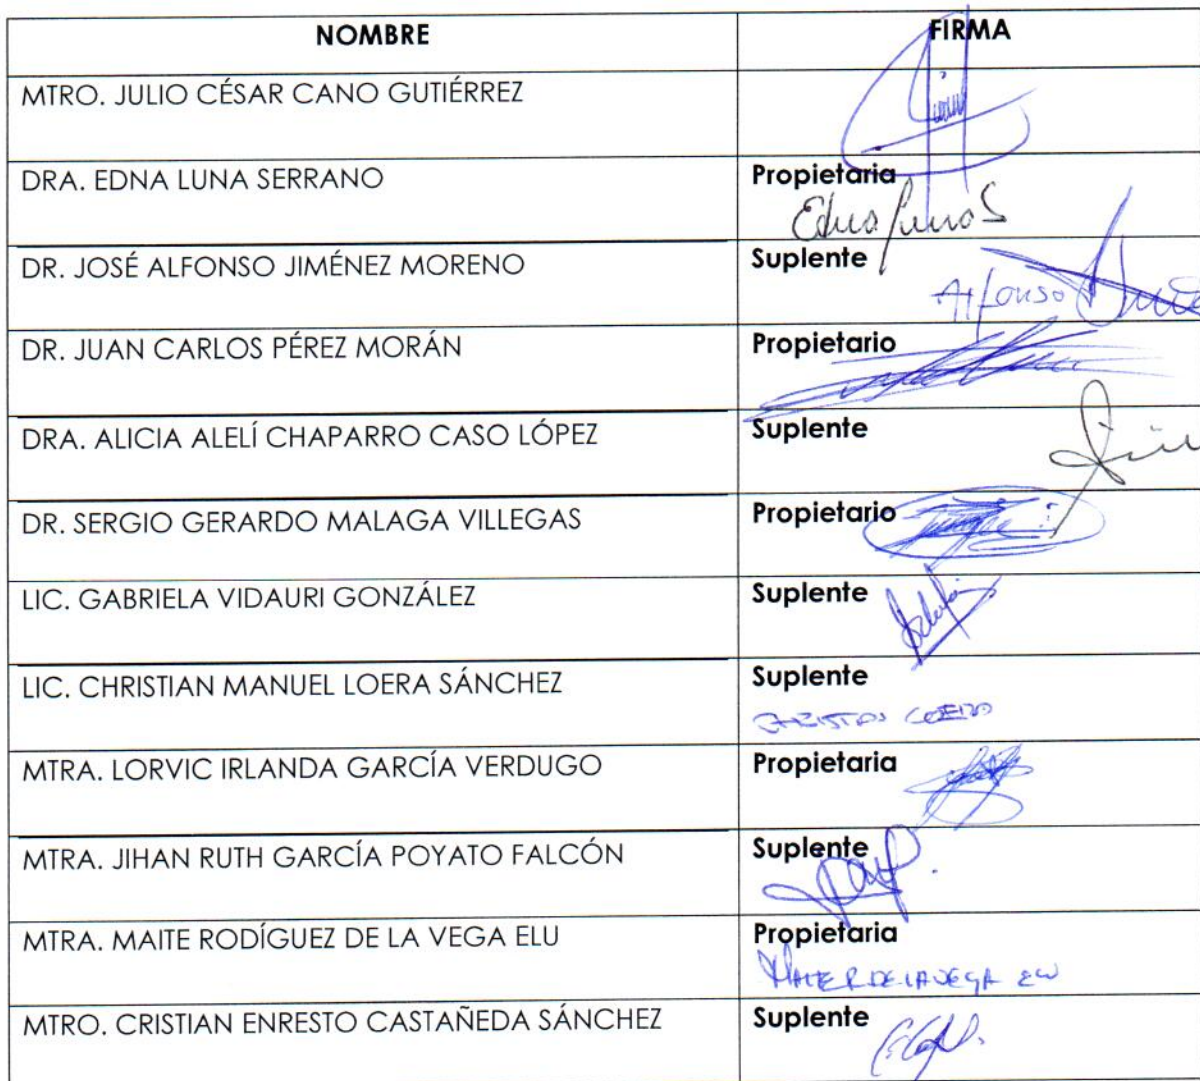 NOMBRE FIRMA
MTRO. JULIO CÉSAR CANO GUTIÉRREZ
DRA. EDNA LUNA SERRANO Propietaria
Edna Luna S
DR. JOSÉ ALFONSO JIMÉNEZ MORENO Suplente
Alfonso
DR. JUAN CARLOS PÉREZ MORÁN Propietario
DRA. ALICIA ALELÍ CHAPARRO CASO LÓPEZ Suplente
DR. SERGIO GERARDO MALAGA VILLEGAS Propietario
LIC. GABRIELA VIDAURI GONZÁLEZ Suplente
LIC. CHRISTIAN MANUEL LOERA SÁNCHEZ Suplente
MTRA. LORVIC IRLANDA GARCÍA VERDUGO Propietaria
MTRA. JIHAN RUTH GARCÍA POYATO FALCÓN Suplente
MTRA. MAITE RODÍGUEZ DE LA VEGA ELU Propietaria
MAITE R DE LA VEGA ELU
MTRO. CRISTIAN ENRESTO CASTAÑEDA SÁNCHEZ Suplente